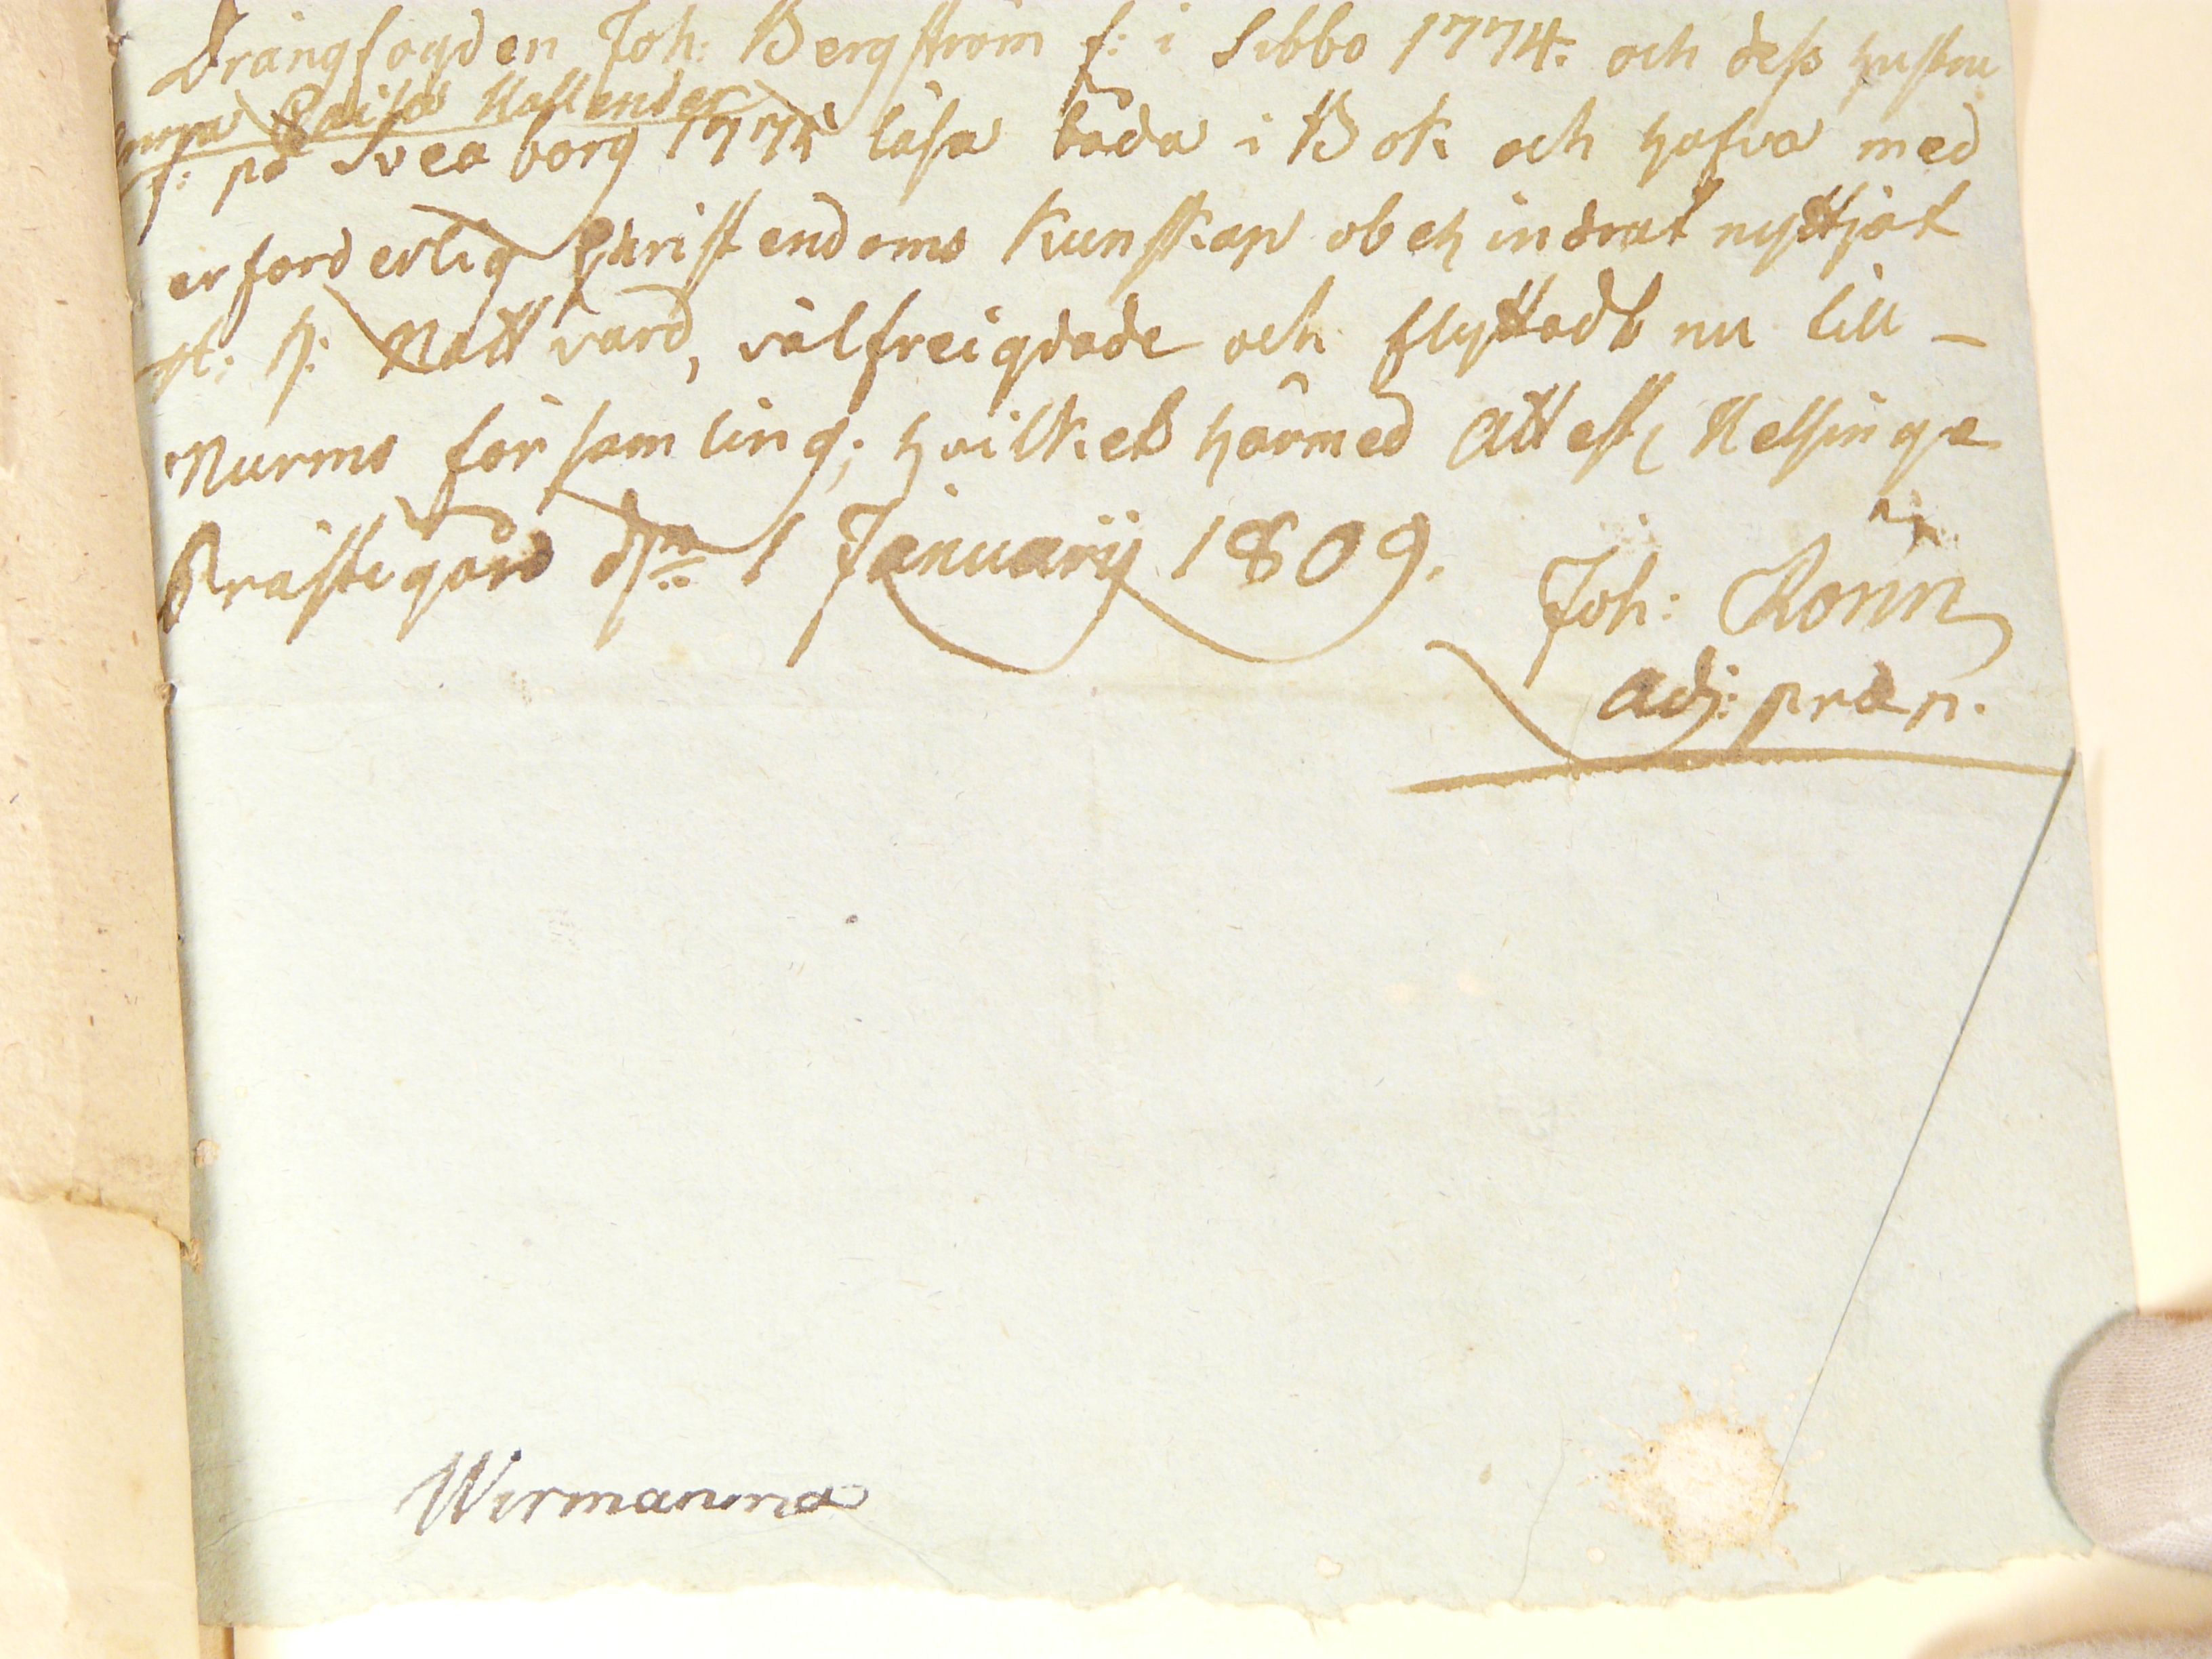 Drängfogden Joh: Bergström f: i Sibbo 1774. och dess hustru
Anna Caisa Hallender
f: på Sveaborg 1775 läsa båda i Bok och hafva med
erforderlig Christendoms Kunskap obehindrat nyttjat
H: Nattvard, välfreigdade och flyttade nu till –
Nurmis församling; hvilket härmed Attest. Helsinge
Prästegård d. 1 Januarij 1809.
Joh: Rönn
Adj: præp.
Wirmanma